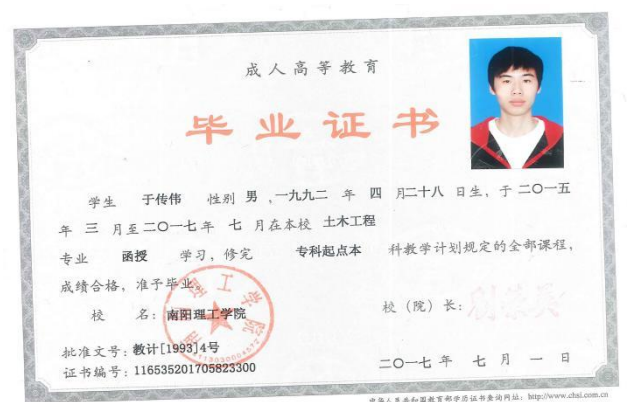 成人高等教育
毕业证书
学生 于传伟 性别 男 ,一九九二 年 四 月二十八 日生，于 二〇一五
年 三 月至 二〇一七 年 七 月在本校 土木工程
专业 函授 学习，修完 专科起点本 科教学计划规定的全部课程，
成绩合格，准予毕业。
校 名：南阳理工学院 校（院）长：
批准文号：教计[1993]4号
证书编号：116535201705823300 二〇一七 年 七 月 一 日
中华人民共和国教育部学历证书查询网址：http://www.chsi.com.cn